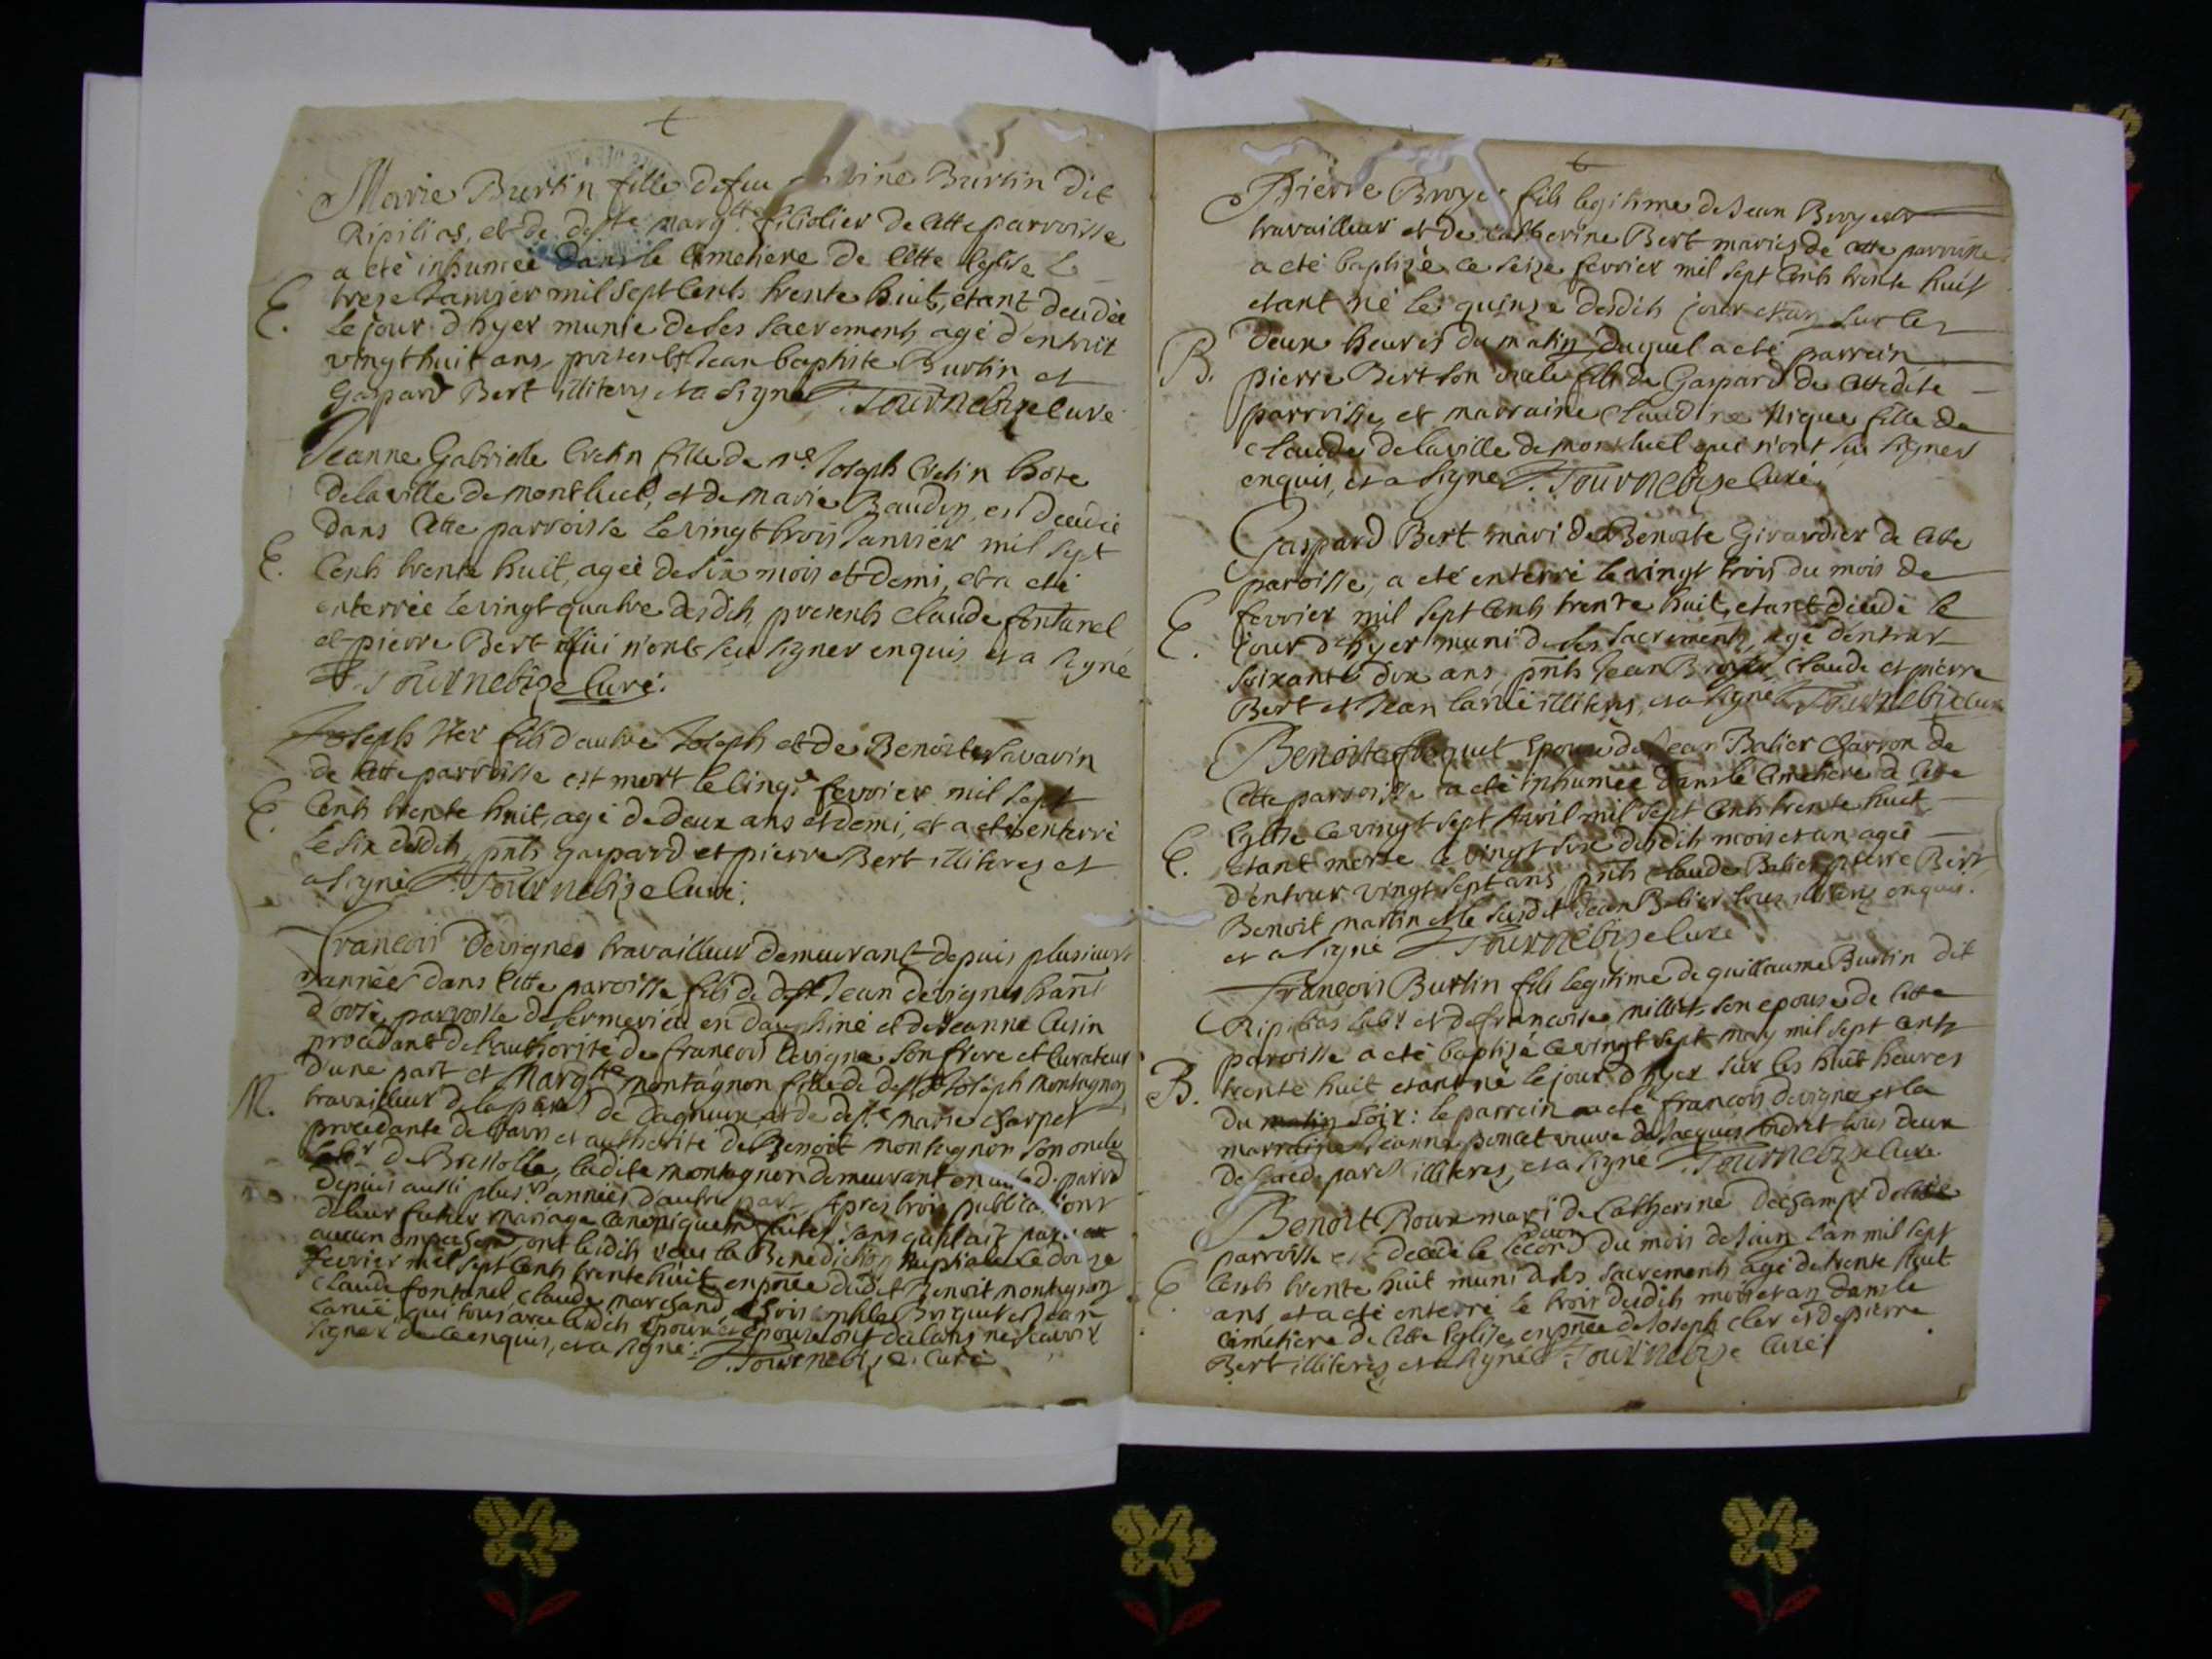 Marie Burtin fille de feu Burtin dit
Ripilias, et de defte margtte filiolier de cette parroisse
a eté inhumée dans le Cimetiere de cette Eglise le
E. treze Janvier mil sept cents trente huit, etant decedée
le jour d'hyer munie de ses sacrements agé d'entour
vingt huit ans, presents Jean baptiste Burtin et
Gaspard Bert illiterez et a signé Tournebize curé
Jeanne Gabrielle Cretin fille de Me Joseph Cretin hote
de la ville de montluel, et de marie Baudin, est decedée
dans cette parroisse le vingt trois Janvier mil sept
E. Cents trente huit, agée de six mois et demi, et a eté
enterrée le vingt quatre desdits, presents Claude fontanel
et pierre Bert qui n'ont sceu signer enquis et a signé
Tournebize Curé.
Joseph fils d'autre Joseph et de Benoite Savarin
de cette parroisse est mort le cinq fevrier mil sept
E. Cents trente huit, agé de deux ans et demi, et a eté enterré
le six desdits, pnts gaspard et pierre Bert illiterez et
a signé Tournebize Curé.
Francois Devignes travailleur demeurant depuis plusieurs
années dans cette paroisse fils de deft Jean devignes hant
parroisse de sermerieu en dauphiné et de Jeanne Cusin
procedant de l'authorité de francois devigne son frere et curateur
d'une part et Margtte montagnon fille de deft Joseph montagnon
M. travailleur de la parr de Dagnieux et de defte marie charpet
procedante de l'avis et authorité de Benoit montagnon son oncle
labr de Bressolle, ladite montagnon demeurant en cette d. parr
depuis aussi plusrs années d'autre part. Apres trois publications
de leur futur mariage canoniquemt faites sans qu'il ait paru
aucun empechement ont lesdits receu la Benediction Nuptiale le douze
fevrier mil sept cents trente huit en pnce dudit Benoit montagnon
Claude fontanel claude marchand, Briquet et Jean
Larue, qui tous avec lesdits Epoux et epouse ont declaré ne scavoir
signer de ce enquis, et a signé. Tournebize Curé
Pierre Broyer fils legitime de Jean Broyer
travailleur et de catherine Bert mariés de cette parroisse
a eté baptisé le seize fevrier mil sept cents trente huit
etant né le quinze desdits jour et an sur les
deux heures du matin duquel a eté parrein
B. pierre Bert son oncle fils de Gaspard de cettedite
parroisse, et marraine Claudine Nique fille de
claude de la ville de montluel qui n'ont sçu signer
enquis, et a signé Tournebize Curé.
Gaspard Bert mari de Benoite Girardier de cette
paroisse, a eté enterré le vingt trois du mois de
fevrier mil sept Cents trente huit, etant decedé le
E. jour d'hyer muni de ses sacrements, agé d'entour
soixante dix ans, pnts Jean Broyer, claude et pierre
Bert et Jean larue illiterez, et a signé Tournebize Curé
Benoite epouse de Jean Balier Charron de
Cette parroisse a eté inhumée dans le Cimetiere de cette
Eglise le vingt sept Avril mil sept Cents trente huit
E. etant morte le vingt six desdits mois et an agée
d'entour vingt sept ans, pnts claude Balier pierre Bert
Benoit martin et le susdit Jean Balier tous illiterez enquis.
et a signé Tournebize Curé
François Burtin fils legitime de guillaume Burtin dit
Ripilias labr et de francoise millet son epouse de cette
paroisse a eté baptisé le vingt sept may mil sept cents
B. trente huit etant né le jour d'hyer sur les huit heures
du matin soir: le parrein a eté francois devigne et la
marraine Jeanne poncet veuve de Jacques Andret tous deux
de lad. parr illiterez, et a signé Tournebize Curé.
Benoit Roux mari de Catherine Dechamps de cette
parroisse est decedé le second du mois de Juin l'an mil sept
E. Cents trente huit muni de ses sacrements agé de trente huit
ans, et a eté enterré le trois desdits mois et an dans le
cimetiere de cette Eglise, en pnce de Joseph et de pierre
Bert illiterez, et a signé Tournebize Curé